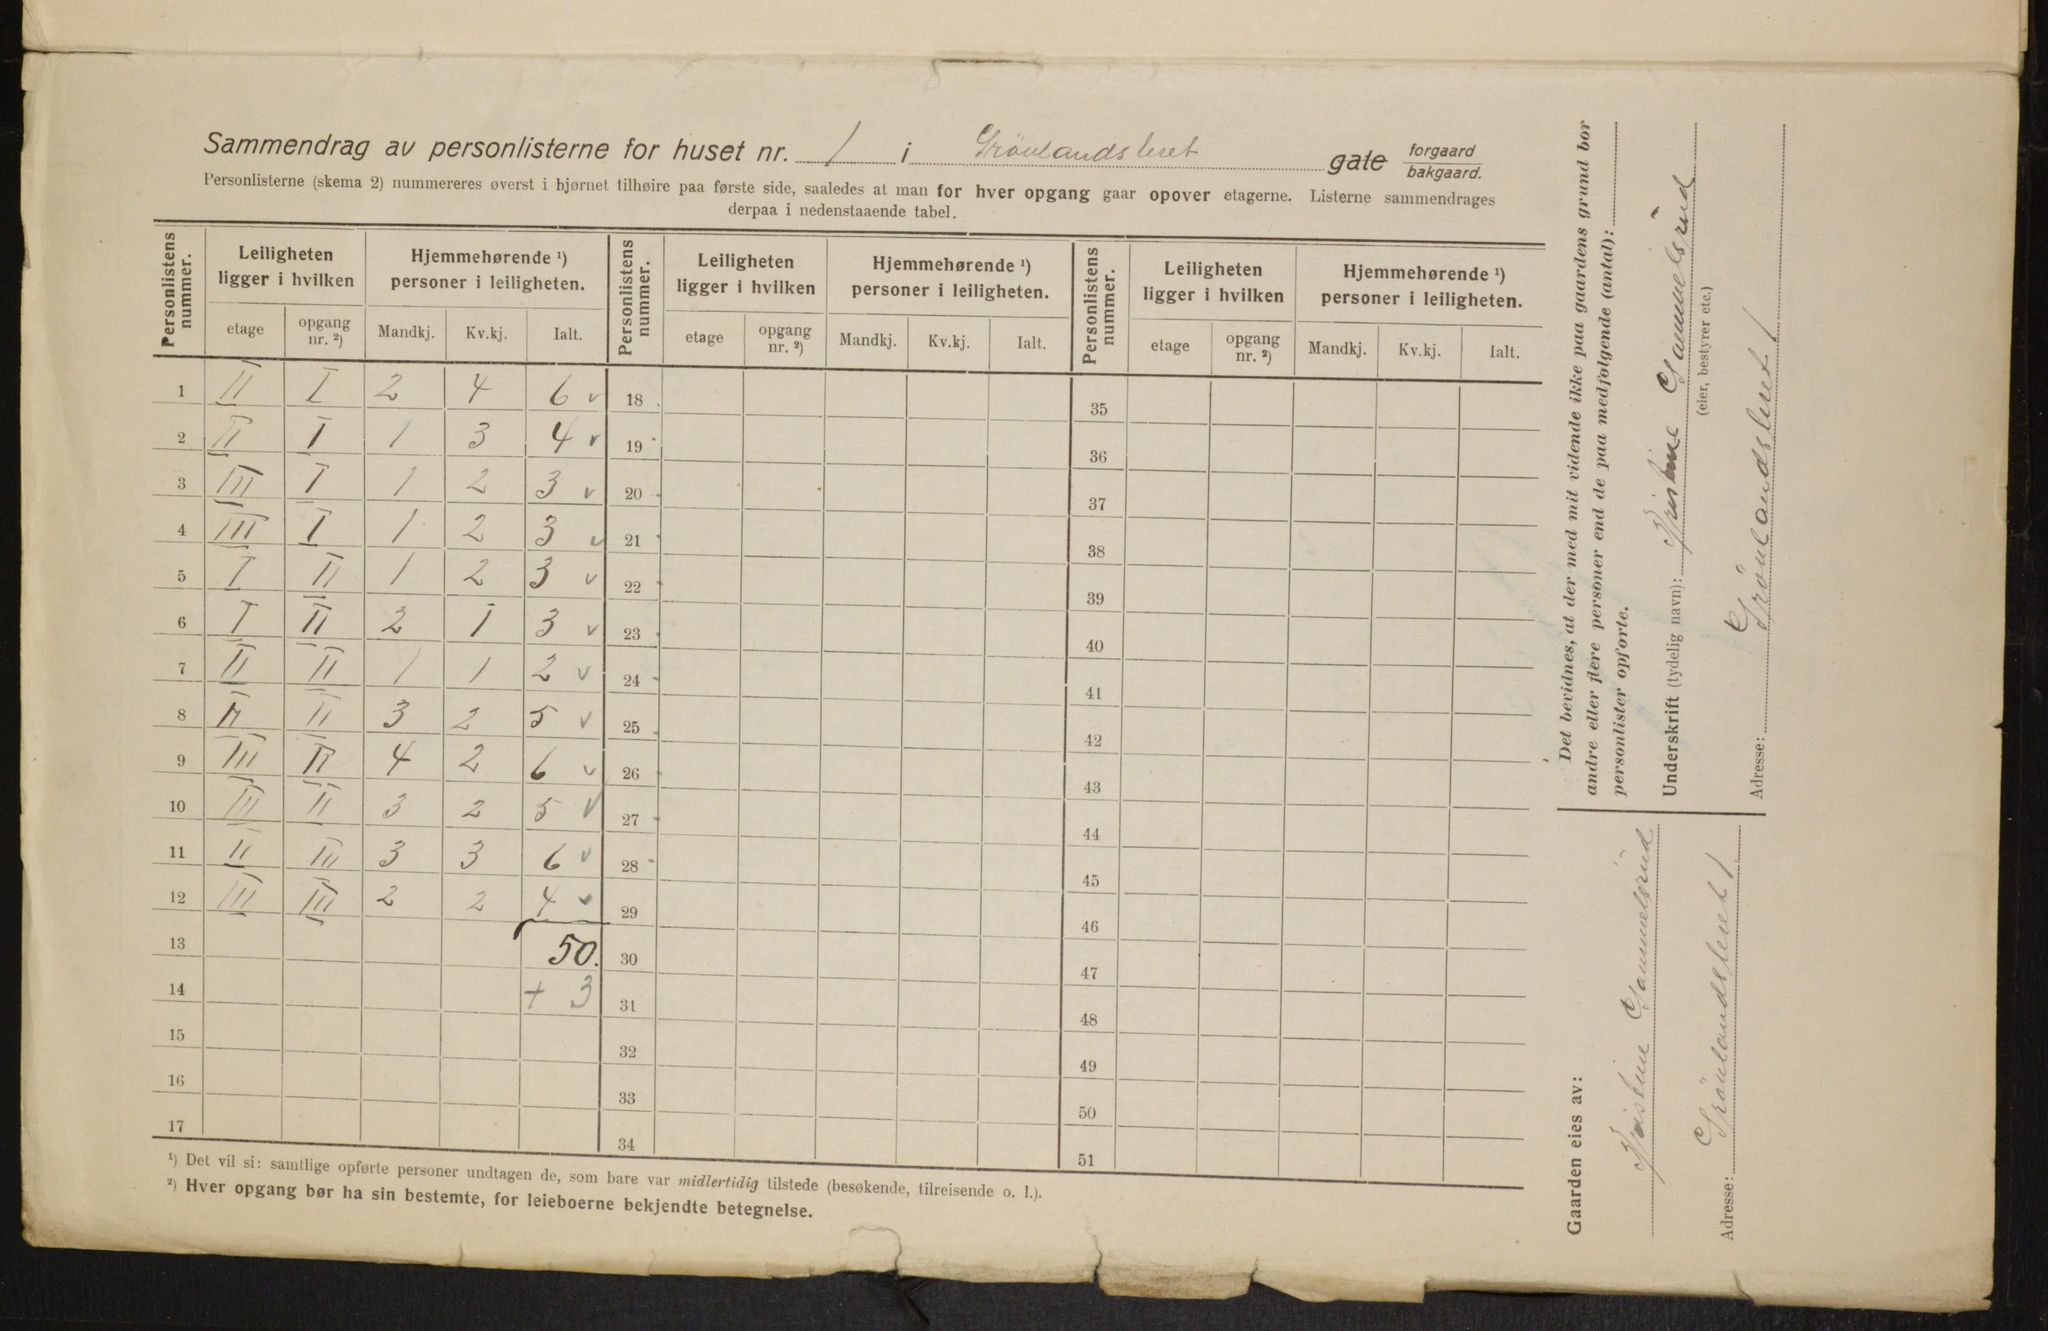 Sammendrag av personlisterne for huset nr. 1 i Grönlandsleret gate forgaard bakgaard.
Personlisterne (skema 2) nummereres øverst i hjørnet tilhøire paa første side, saaledes at man for hver opgang gaar opover etagerne. Listerne sammendrages
derpaa i nedenstaaende tabel.
Personlistens nummer. Leiligheten ligger i hvilken Hjemmehørende ¹) personer i leiligheten. Personlistens nummer. Leiligheten ligger i hvilken Hjemmehørende ¹) personer i leiligheten. Personlistens nummer. Leiligheten ligger i hvilken Hjemmehørende ¹) personer i leiligheten.
etage opgang nr. ²) Mandkj. Kv.kj. Ialt. etage opgang nr. ²) Mandkj. Kv.kj. Ialt. etage opgang nr. ²) Mandkj. Kv.kj. Ialt.
1 II I 2 4 6 v 18 35
2 II I 1 3 4 v 19 36
3 III I 1 2 3 v 20 37
4 III I 1 2 3 v 21 38
5 I II 1 2 3 v 22 39
6 I II 2 1 3 v 23 40
7 II II 1 1 2 v 24 41
8 II II 3 2 5 v 25 42
9 III II 4 2 6 v 26 43
10 III II 3 2 5 v 27 44
11 II III 3 3 6 v 28 45
12 III III 2 2 4 v 29 46
13 50. 30 47
14 + 3 31 48
15 32 49
16 33 50
17 34 51
¹) Det vil si: samtlige opførte personer undtagen de, som bare var midlertidig tilstede (besøkende, tilreisende o. l.).
²) Hver opgang bør ha sin bestemte, for leieboerne bekjendte betegnelse.
Det bevidnes, at der med mit vidende ikke paa gaardens grund bor
andre eller flere personer end de paa medfølgende (antal):
personlister opførte.
Underskrift (tydelig navn): Kristine Gammelsrud
(eier, bestyrer etc.)
Adresse: Grönlandsleret 1
Gaarden eies av:
Kristine Gammelsrud
Adresse: Grönlandsleret 1